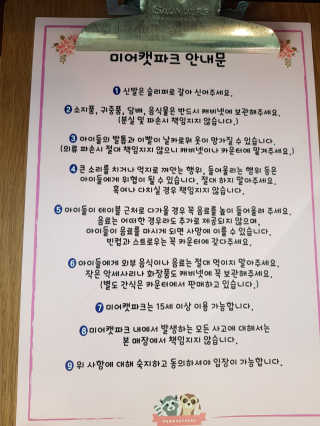 미어캣파크 안내문
1 신발은 슬리퍼로 갈아 신어주세요.
2 소지품, 귀중품, 담배, 음식물은 반드시 캐비넷에 보관해주세요.
(분실 및 파손시 책임지지 않습니다.)
3 아이들의 발톱과 이빨이 날카로워 옷이 망가질 수 있습니다.
(의류 파손시 절대 책임지지 않으니 캐비넷이나 카운터에 맡겨주세요.)
4 큰 소리를 치거나 억지로 껴안는 행위, 들어올리는 행위 등은
아이들에게 위협이 될 수 있습니다. 절대 하지 말아주세요.
혹여나 다치실 경우 책임지지 않습니다.
5 아이들이 테이블 근처로 다가올 경우 꼭 음료를 높이 들어올려 주세요.
음료는 어떠한 경우라도 추가로 제공되지 않으며,
아이들이 음료를 마시게 되면 사망에 이를 수 있습니다.
빈컵과 스트로우는 꼭 카운터에 갖다주세요.
6 아이들에게 외부 음식이나 음료는 절대 먹이지 말아주세요.
작은 악세사리나 화장품도 캐비넷에 꼭 보관해주세요.
(별도 간식은 카운터에서 판매하고 있습니다.)
7 미어캣파크는 15세 이상 이용 가능합니다.
8 미어캣파크 내에서 발생하는 모든 사고에 대해서는
본 매장에서 책임지지 않습니다.
9 위 사항에 대해 숙지하고 동의하셔야 입장이 가능합니다.